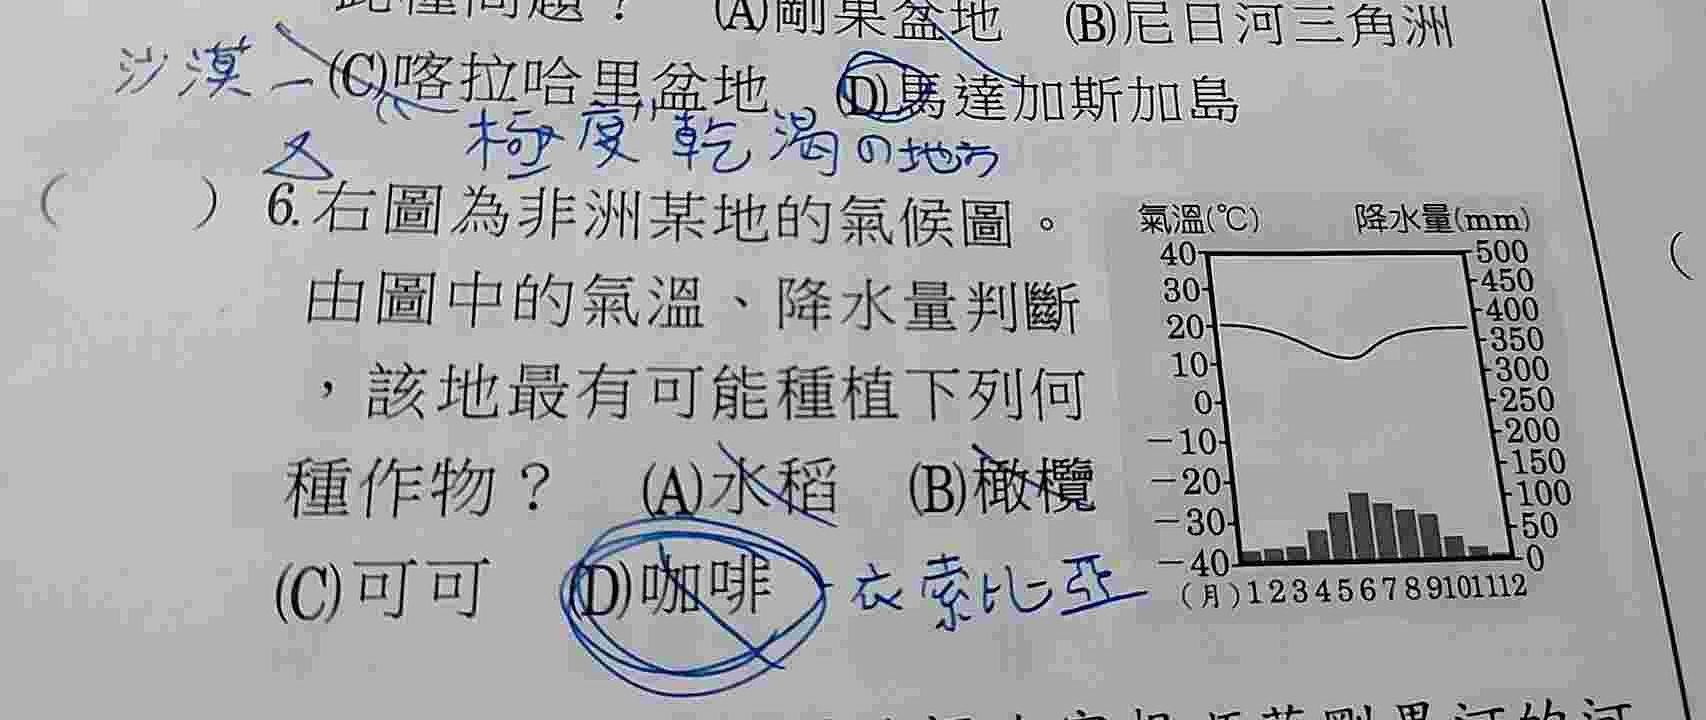 此種問題？ (A)剛果盆地 (B)尼日河三角洲
沙漠－(C)喀拉哈里盆地 (D)馬達加斯加島
極度乾渴の地方
( ) 6.右圖為非洲某地的氣候圖。
由圖中的氣溫、降水量判斷
，該地最有可能種植下列何
種作物？ (A)水稻 (B)橄欖
(C)可可 (D)咖啡 衣索比亞
氣溫(℃) 降水量(mm)
40 500
30 450
20 400
10 350
0 300
－10 250
－20 200
－30 150
－40 100
50
0
(月)1 2 3 4 5 6 7 8 9 10 11 12
(